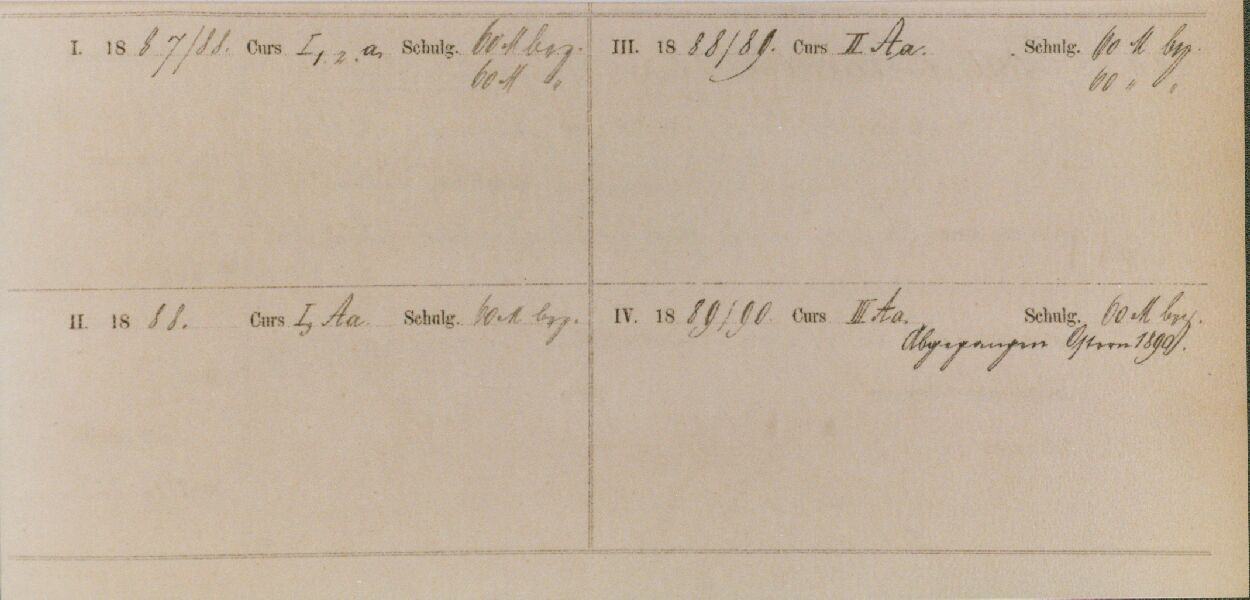 I. 18 87/88. Curs I, 1. 2. a. Schulg. 60 M bez.
60 M "
II. 18 88. Curs I, 3 Aa. Schulg. 60 M bez.
III. 18 88/89. Curs II Aa. Schulg. 60 M bez.
60 " "
IV. 18 89/90. Curs III Aa. Schulg. 60 M bez.
Abgegangen Ostern 1890.